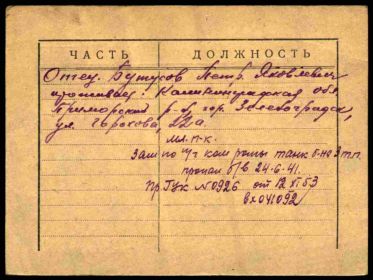 ЧАСТЬ ДОЛЖНОСТЬ
Отец. Бутусов Петр Яковлевич
проживает: Калининградская обл.
Приморский р-н, гор. Зеленоградск,
ул. Горохова, 22а.
мл. п-к.
Зам по п/ч ком роты танк б-на 3 т.п.
пропал б/в 24-6-41.
Пр ГУК № 0926 от 12 XI 53
вх 041092